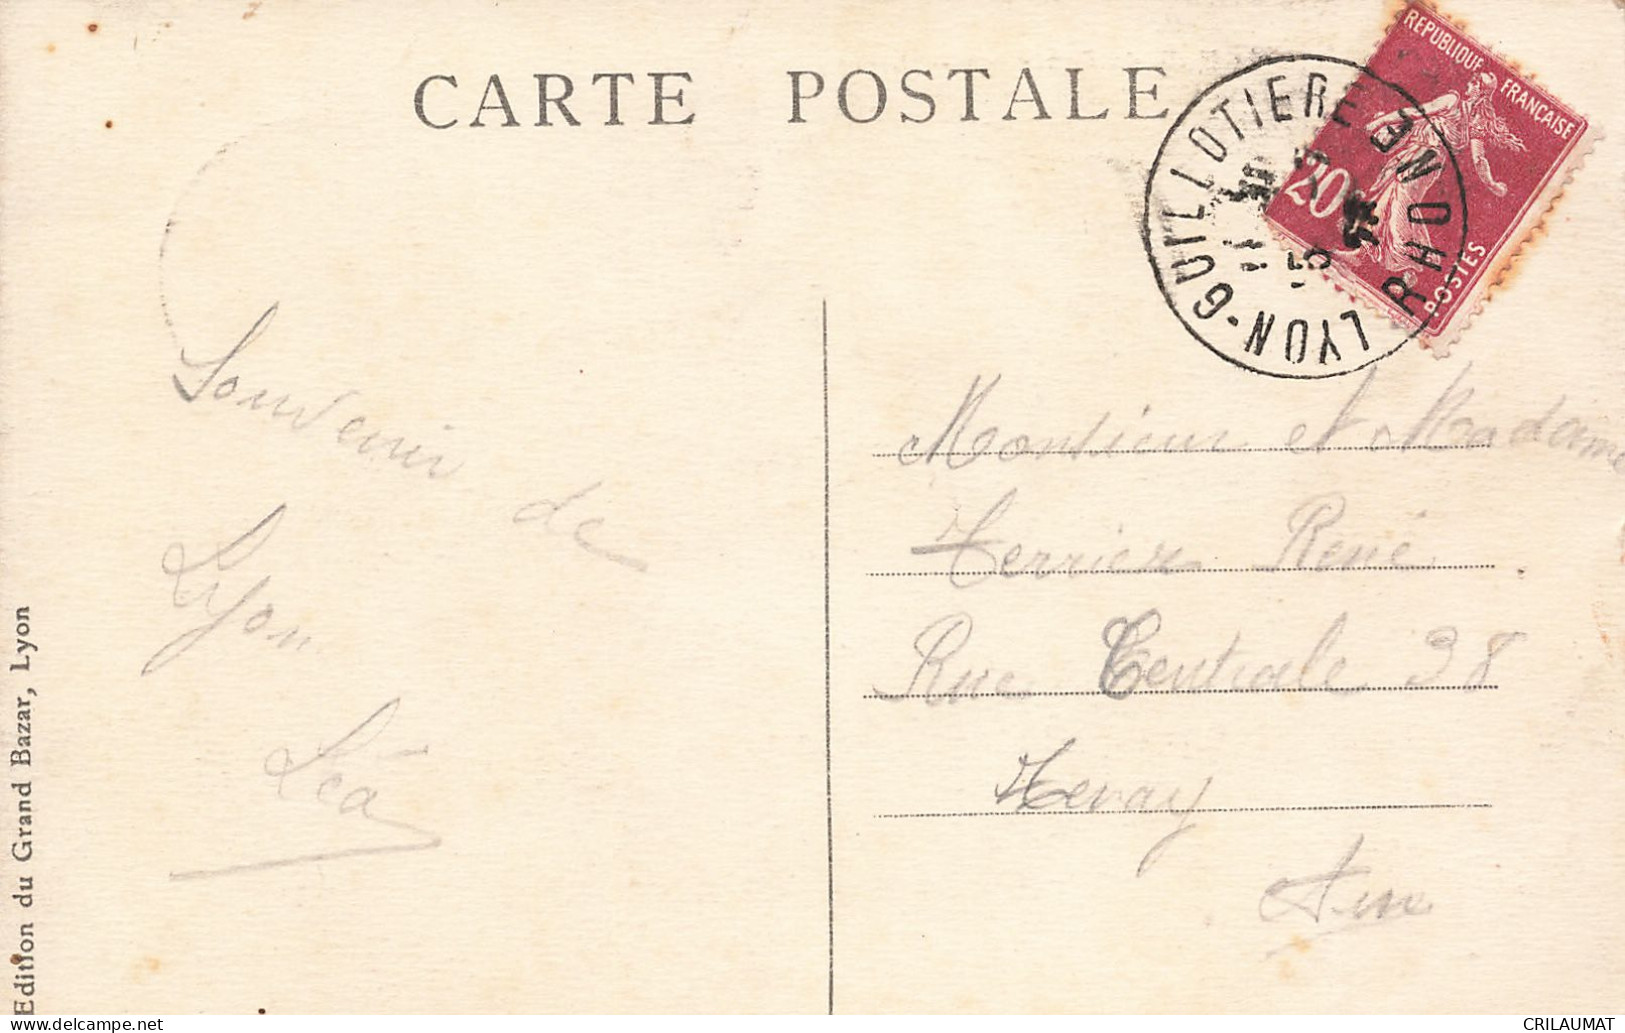 CARTE POSTALE
REPUBLIQUE FRANÇAISE
20c
POSTES
LYON-GUILLOTIERE
RHONE
Souvenir de
Lyon
Léa
Monsieur et Madame
Terrier René
Rue Centrale 38
Ain
Edition du Grand Bazar, Lyon
CRILAUMAT